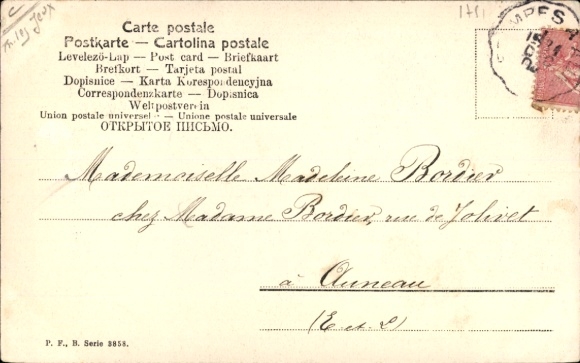 Carte postale
Postkarte — Cartolina postale
Levelező-Lap — Post card — Briefkaart
Brefkort — Tarjeta postal
Dopisnice — Karta Korespondencyjna
Correspondenzkarte — Dopisnica
Weltpostverein
Union postale universelle — Unione postale universale
ОТКРЫТОЕ ПИСЬМО.
Mademoiselle Madeleine Bordier
chez Madame Bordier, rue de Jolivet
à Auneau
(E-et-L)
P. F., B. Serie 3858.